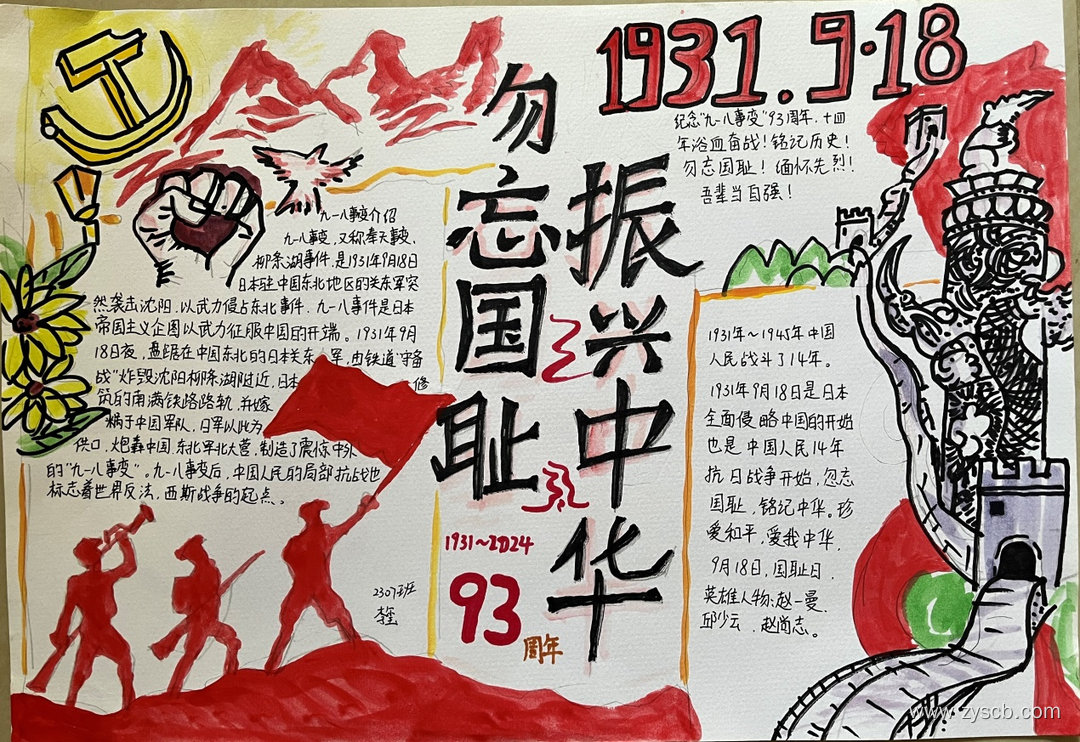 1931.9·18
纪念"九一八事变"93周年.十四
年浴血奋战！铭记历史！
勿忘国耻！缅怀先烈！
吾辈当自强！
勿忘国耻
振兴中华
1931~2024
93
周年
九一八事变介绍
九一八事变,又称奉天事变,
柳条湖事件,是1931年9月18日
日本驻中国东北地区的关东军突
然袭击沈阳.以武力侵占东北事件.九一八事件是日本
帝国主义企图以武力征服中国的开端。1931年9月
18日夜,盘踞在中国东北的日本关东军,由铁道"守备
战"炸毁沈阳柳条湖附近,日本修
筑的南满铁路路轨,并嫁
祸于中国军队,日军以此为
供口,炮轰中国东北军北大营,制造了震惊中外
的"九一八事变"。九一八事变后,中国人民的局部抗战也
标志着世界反法,西斯战争的起点。
2307班
1931年~1945年中国
人民战斗了14年。
1931年9月18日是日本
全面侵略中国的开始
也是中国人民14年
抗日战争开始,忽忘
国耻,铭记中华。珍
爱和平,爱我中华.
9月18日,国耻日.
英雄人物:赵一曼.
邱少云.赵尚志。
www.zyscb.com